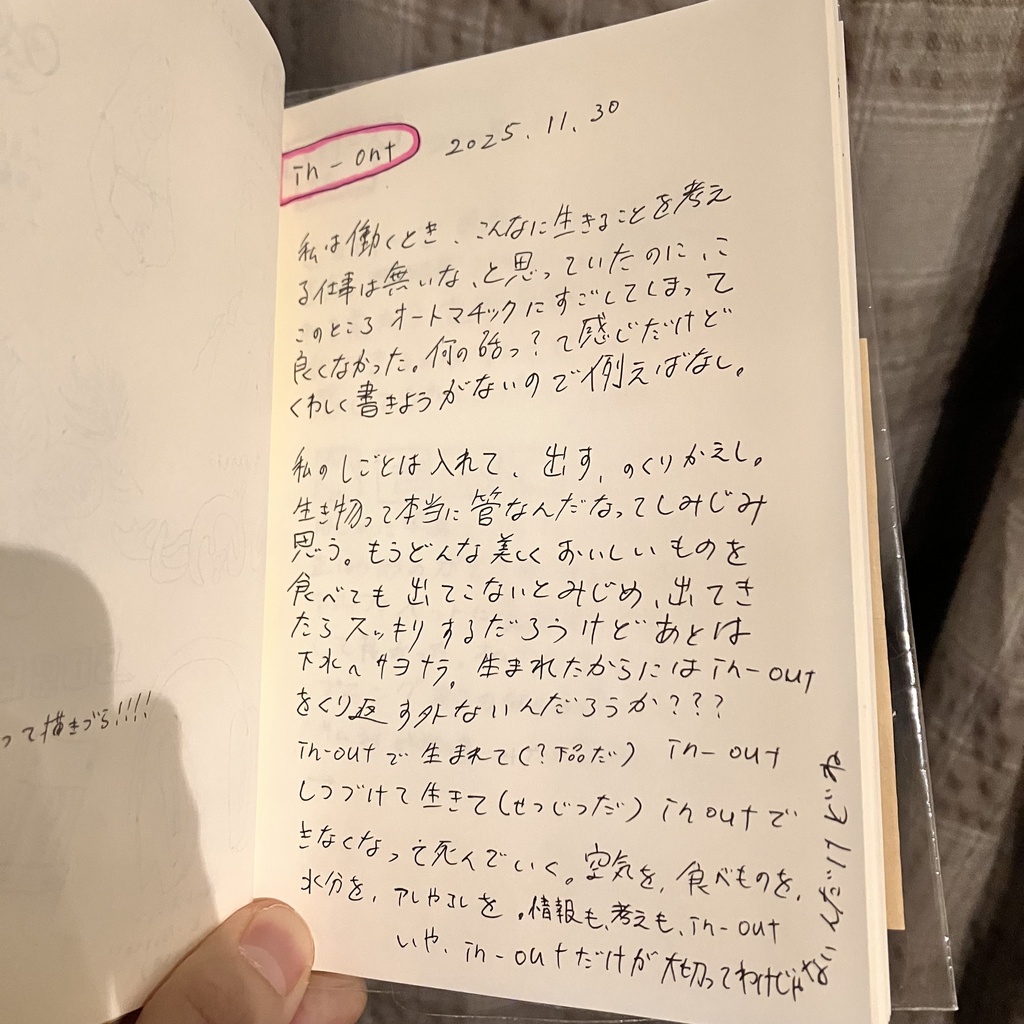 って描きづら!!!!
in-out 2025.11.30
私は働くとき、こんなに生きることを考え
る仕事は無いな、と思っていたのに、こ
このところ オートマチックにすごしてしまって
良くなかった。何の話っ?て感じだけど
くわしく書きようがないので例えばなし。
私のしごとは入れて、出す、のくりかえし。
生き物って本当に管なんだなってしみじみ
思う。もうどんな美しくおいしいものを
食べても出てこないとみじめ、出てき
たらスッキリするだろうけどあとは
下水へサヨナラ。生まれたからにはin-out
をくり返す外ないんだろうか???
in-outで生まれて(?下品だ) in-out
しつづけて生きて(せつじつだ) in outで
きなくなって死んでいく。空気を、食べものを、
水分を、アレやコレを。情報も、考えも、in-out
いや、in-outだけが大切ってわけじゃない んだ!けどいね